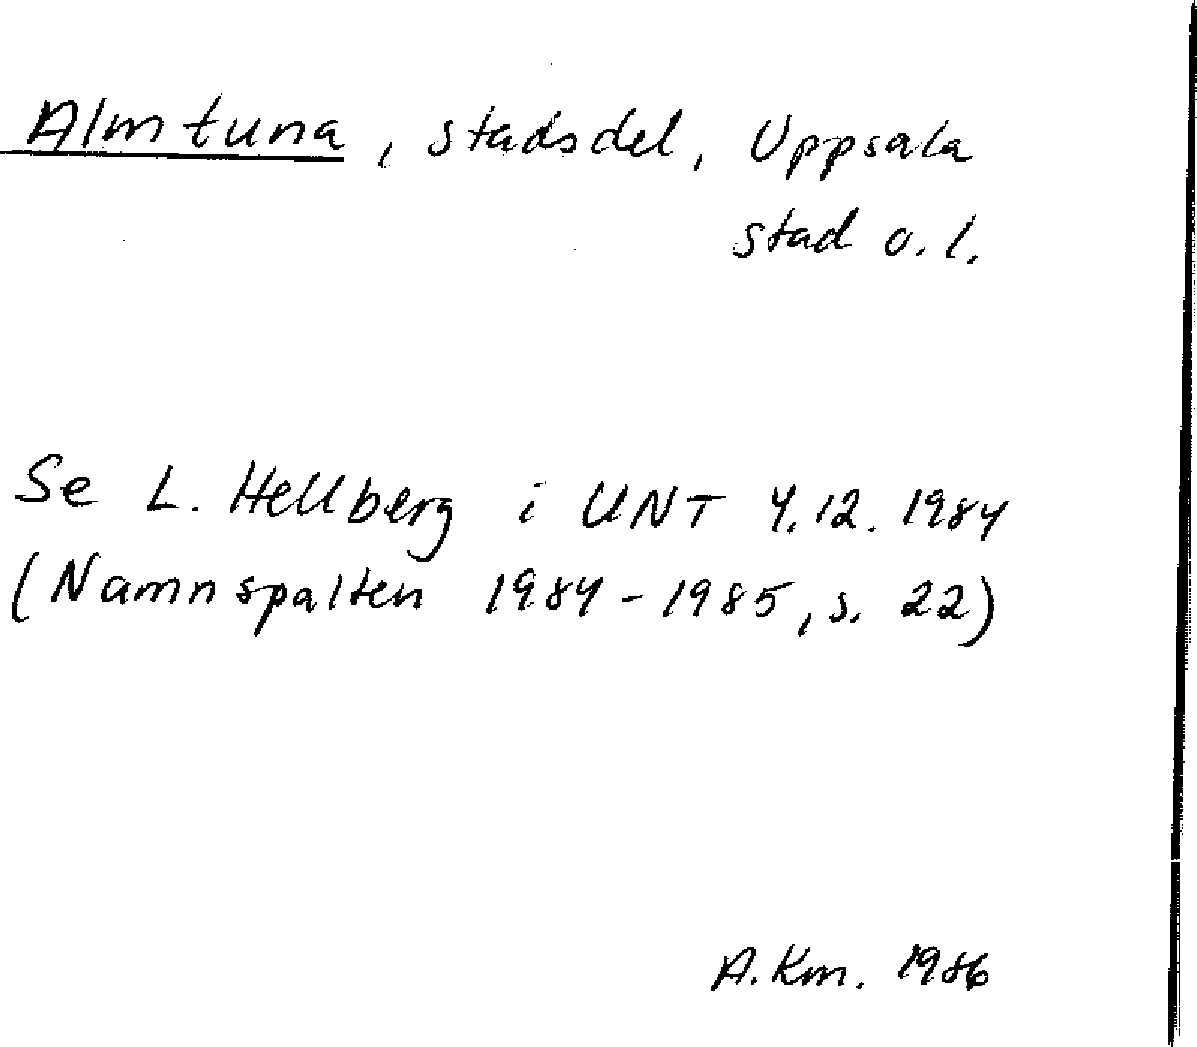 Almtuna, stadsdel, Uppsala
stad o. l.
Se L. Hellberg i UNT 4.12. 1984
(Namnspalten 1984-1985, s. 22)
A. Km. 1986